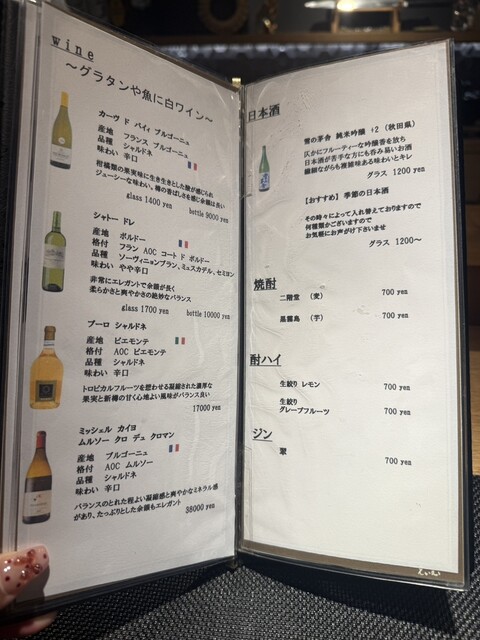 wine
～グラタンや魚に白ワイン～
カーヴ ド バイィ ブルゴーニュ
産地 フランス ブルゴーニュ
品種 シャルドネ
味わい 辛口
柑橘類の果実味に生き生きとした酸が感じられ
ジューシーな味わい、樽の香ばしさを感じ余韻は長い
glass 1400 yen bottle 9000 yen
シャトー ドレ
産地 ボルドー
格付 フラン AOC コート ド ボルドー
品種 ソーヴィニョンブラン、ミュスカデル、セミヨン
味わい やや辛口
非常にエレガントで余韻が長く
柔らかさと爽やかさの絶妙なバランス
glass 1700 yen bottle 10000 yen
プーロ シャルドネ
産地 ピエモンテ
格付 AOC ピエモンテ
品種 シャルドネ
味わい 辛口
トロピカルフルーツを想わせる凝縮された濃厚な
果実と新樽の甘く心地よい風味がバランス良い
17000 yen
ミッシェル カイヨ
ムルソー クロ デュ クロマン
産地 ブルゴーニュ
格付 AOC ムルソー
品種 シャルドネ
味わい 辛口
バランスのとれた程よい凝縮感と爽やかなミネラル感
があり、たっぷりとした余韻もエレガント
38000 yen
日本酒
雪の茅舎 純米吟醸 +2 (秋田県)
仄かにフルーティーな吟醸香を放ち
日本酒が苦手な方にも呑み易いお酒
繊細ながらも複雑味ある味わいとキレ
グラス 1200 yen
【おすすめ】 季節の日本酒
その時々によって入れ替えておりますので
何種類かございますので
お気軽にお声がけ下さいませ
グラス 1200～
焼酎
二階堂 (麦) 700 yen
黒霧島 (芋) 700 yen
酎ハイ
生絞り レモン 700 yen
生絞り
グレープフルーツ 700 yen
ジン
翠 700 yen